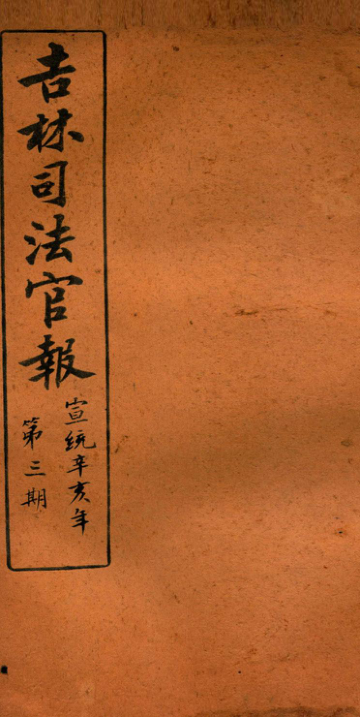 吉林司法官報
宣統辛亥年
第三期